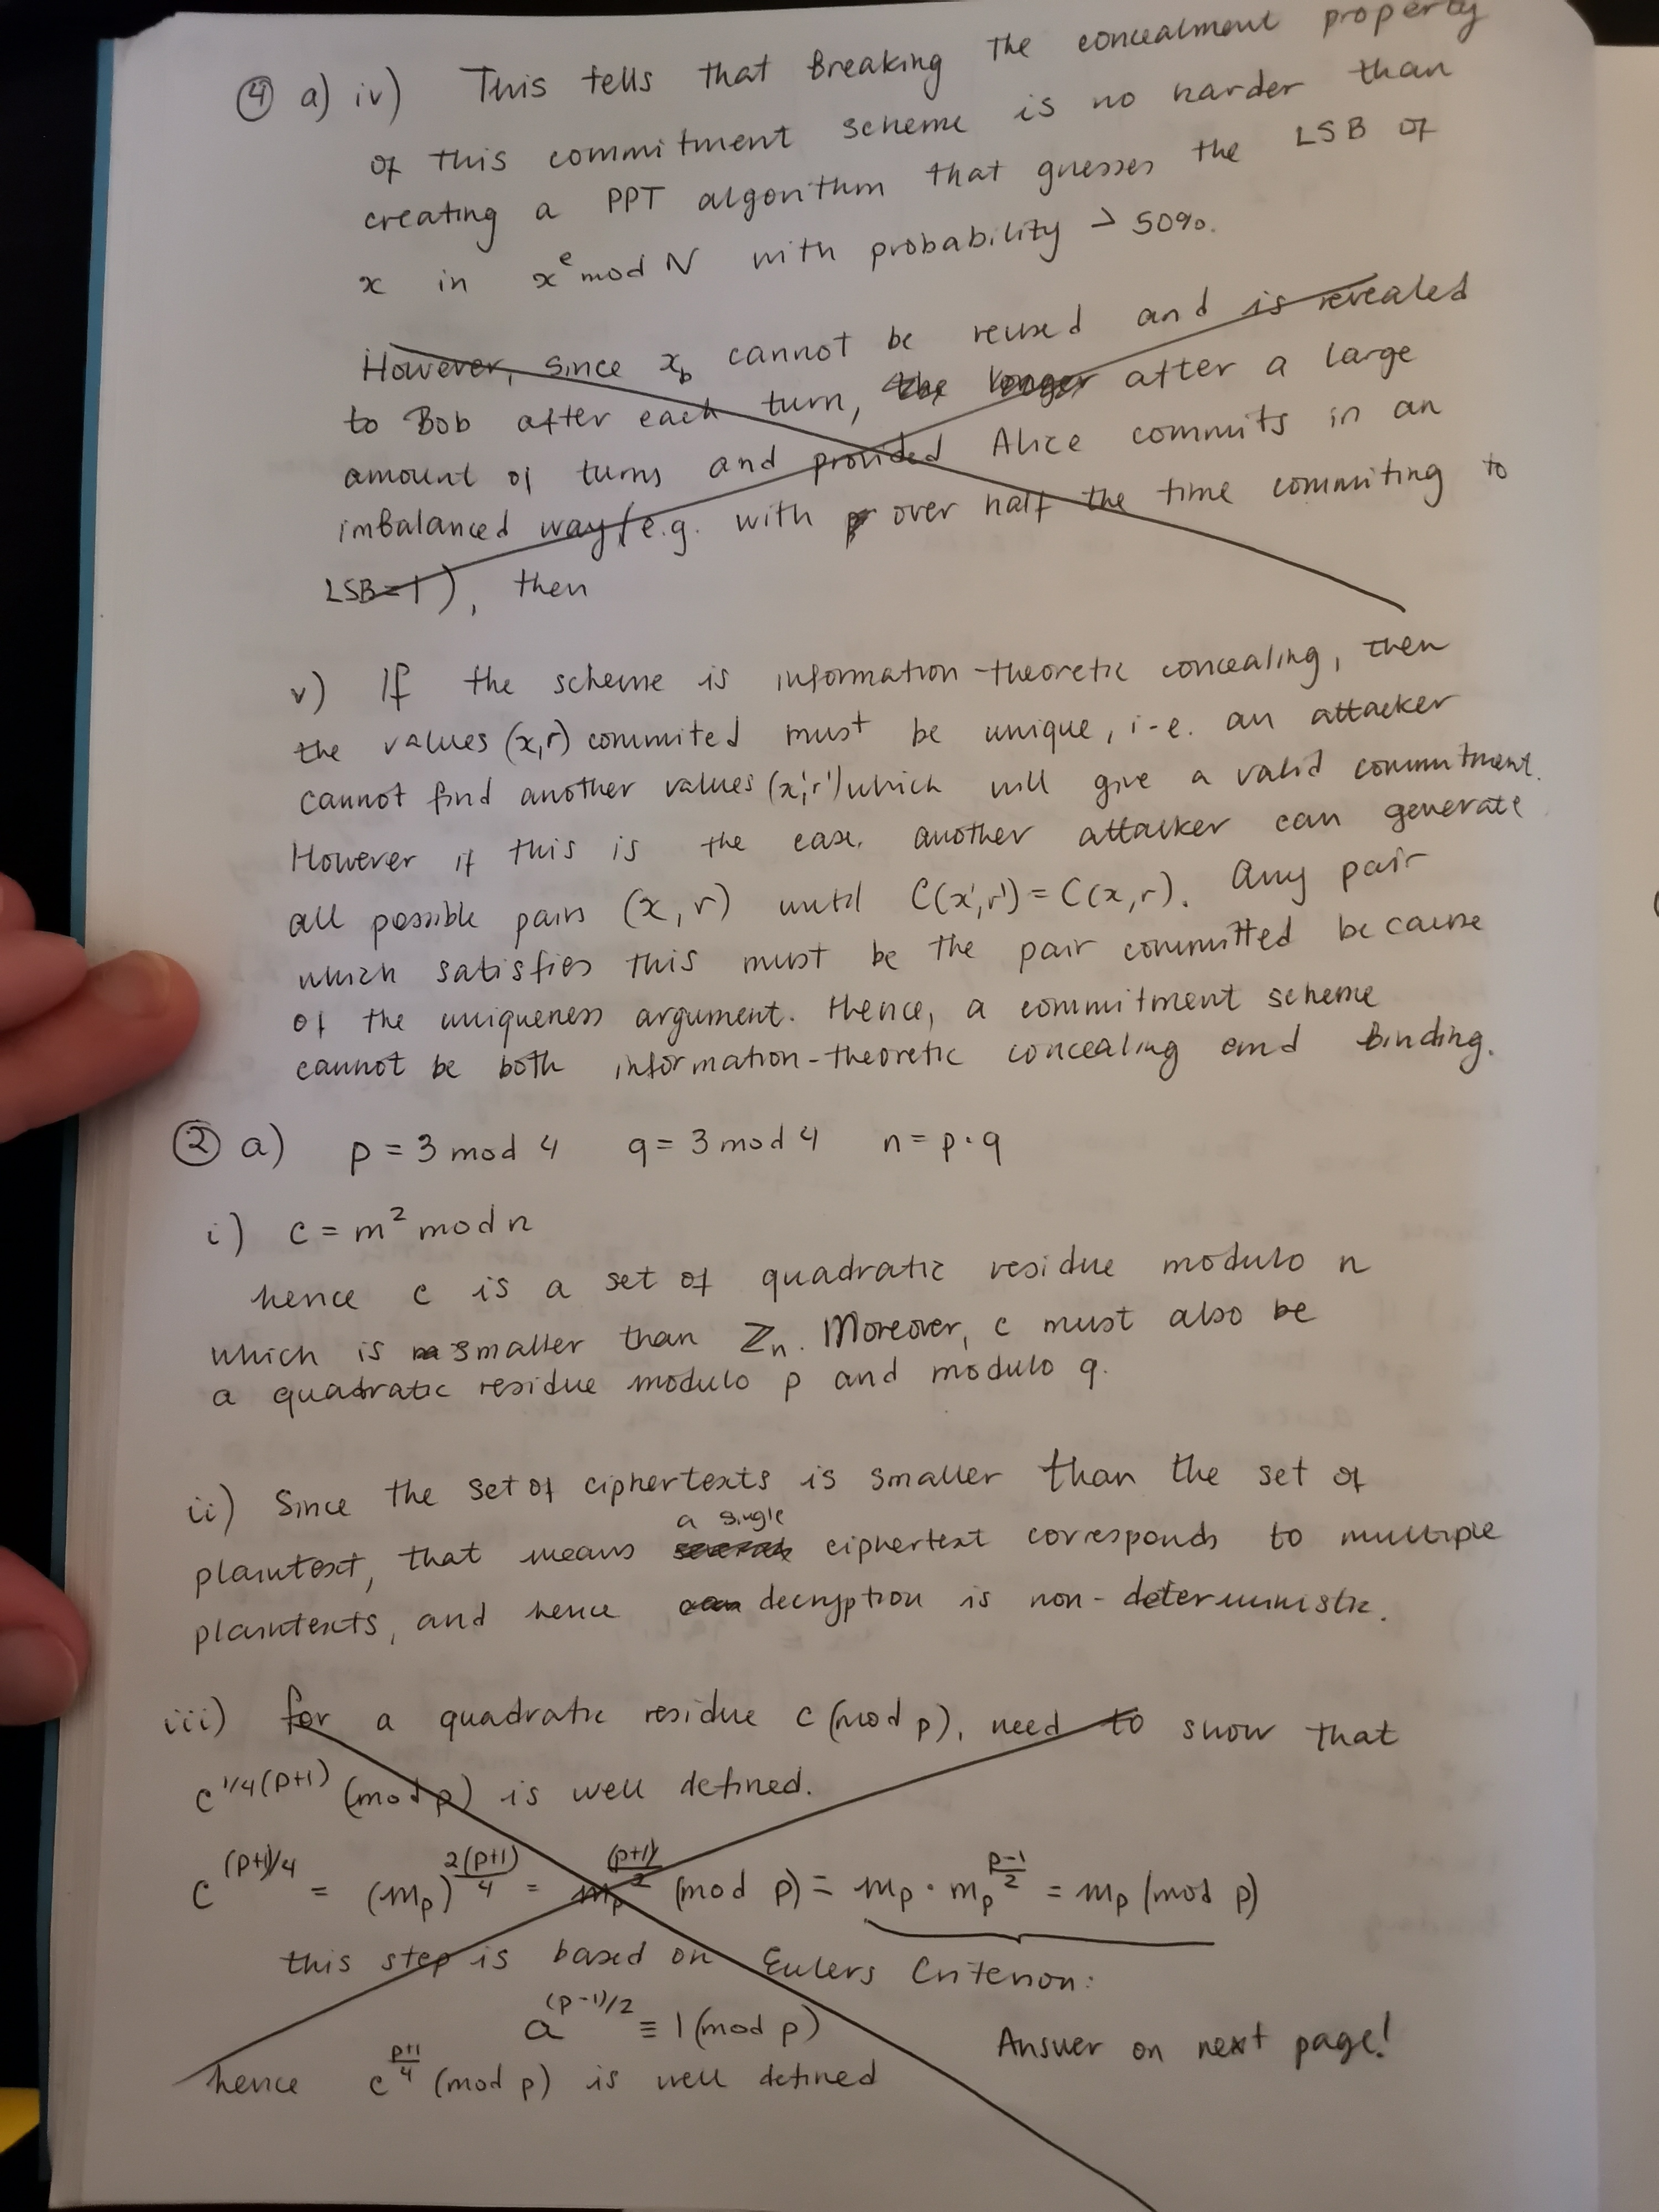 ④ a) iv) This tells that Breaking the concealment property
of this commitment scheme is no harder than
creating a PPT algorithm that guesses the LSB of
x in x^e mod N with probability > 50%.
However, since x_b cannot be reused and is revealed
to Bob after each turn, the longer after a large
amount of turns and provided Alice commits in an
imbalanced way (e.g. with over half the time commiting to
LSB=1), then
v) If the scheme is information-theoretic concealing, then
the values (x,r) commited must be unique, i.e. an attacker
cannot find another values (x',r') which will give a valid commitment.
However if this is the case, another attacker can generate
all possible pairs (x,r) until C(x',r') = C(x,r). Any pair
which satisfies this must be the pair committed because
of the uniqueness argument. Hence, a commitment scheme
cannot be both information-theoretic concealing and Binding.
② a) p = 3 mod 4 q = 3 mod 4 n = p·q
i) c = m² mod n
hence c is a set of quadratic residue modulo n
which is smaller than ℤ_n. Moreover, c must also be
a quadratic residue modulo p and modulo q.
ii) Since the set of ciphertexts is smaller than the set of
plaintext, that means a single ciphertext corresponds to multiple
plaintexts, and hence decryption is non-deterministic.
iii) for a quadratic residue c (mod p), need to show that
c^1/4(p+1) (mod p) is well defined.
c^(p+1)/4 = (m_p)^2(p+1)/4 = m_p^(p+1)/2 (mod p) = m_p · m_p^(p-1)/2 = m_p (mod p)
this step is based on Eulers Criterion:
a^(p-1)/2 ≡ 1 (mod p)
Answer on next page!
hence c^(p+1)/4 (mod p) is well defined